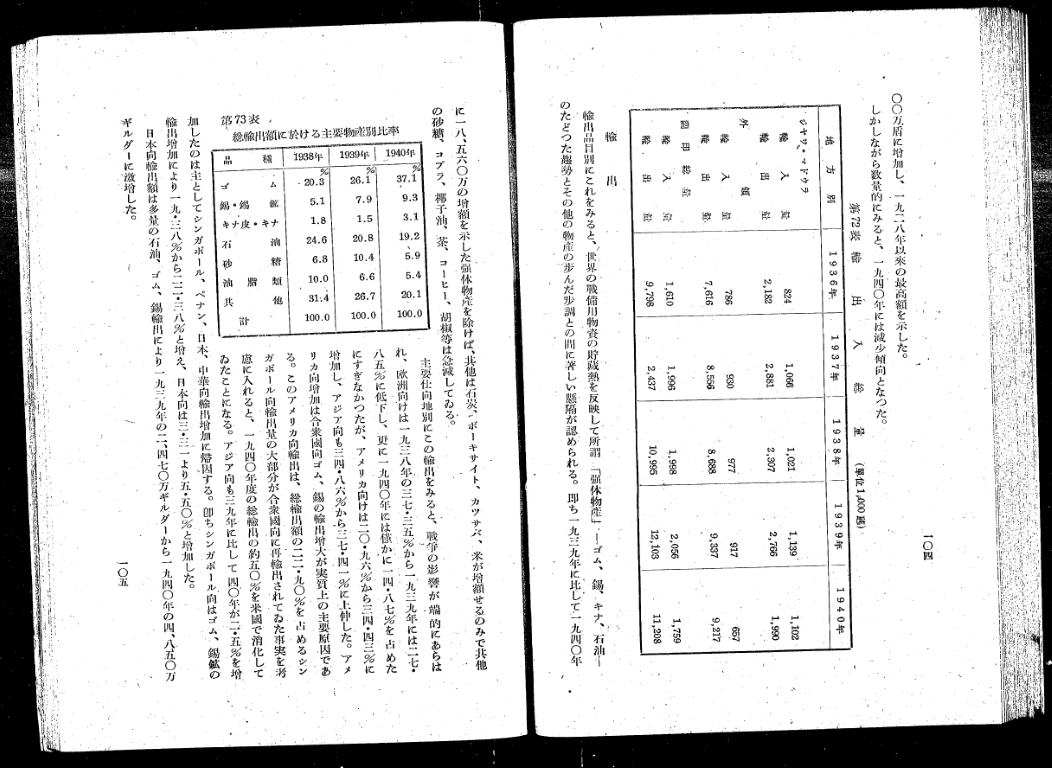 一〇四
〇〇万盾に増加し、一九二八年以來の最高額を示した。
しかしながら数量的にみると、一九四〇年には減少傾向となつた。
第72表 輸出入総量 (單位1,000瓲)
地方別 1936年 1937年 1938年 1939年 1940年
ジヤワ・マドウラ
輸入量 824 1,066 1,021 1,139 1,102
輸出量 2,182 2,881 2,307 2,766 1,990
外領
輸入量 786 930 977 917 657
輸出量 7,616 8,556 8,688 9,337 9,217
蘭印総量
輸入量 1,610 1,996 1,998 2,056 1,759
輸出量 9,798 2,437 10,995 12,103 11,208
輸出
輸出品目別にこれをみると、世界の戰備用物資の貯蔵熱を反映して所謂「强休物産」―ゴム、錫、キナ、石油―
のたどつた趨勢とその他の物產の歩んだ歩調との間に著しい懸隔が認められる。即ち一九三九年に比して一九四〇年
に一八、五六〇万の增額を示した强休物産を除けば、其他は石炭、ボーキサイト、カツサバ、米が增額せるのみで其他
の砂糖、コプラ、椰子油、茶、コーヒー、胡椒等は急減してゐる。
第73表
総輸出額に於ける主要物産別比率
品種 1938年 1939年 1940年
% % %
ゴム 20.3 26.1 37.1
錫・錫鉱 5.1 7.9 9.3
キナ皮・キナ 1.8 1.5 3.1
石油 24.6 20.8 19.2
砂糖 6.8 10.4 5.9
油脂類 10.0 6.6 5.4
其他 31.4 26.7 20.1
計 100.0 100.0 100.0
主要仕向地別にこの輸出をみると、戰爭の影響が端的にあらは
れ、欧洲向けは一九三八年の三七・三五%から一九三九年には二七・
八五%に低下し、更に一九四〇年には僅かに一四・八七%を占めた
にすぎなかつたが、アメリカ向けは二〇・九六%から三四・四三%に
增加し、アジア向も三四・八六%から三七・四一%に上伸した。アメ
リカ向增加は合衆國向ゴム、錫の輸出增大が実質上の主要原因であ
る。このアメリカ向輸出は、総輸出額の二二・九〇%を占めるシン
ガポール向輸出量の大部分が合衆國向に再輸出されてゐた事実を考
慮に入れると、一九四〇年度の総輸出の約五〇%を米國で消化して
ゐたことになる。アジア向も三九年に比して四〇年が二・五%を增
加したのは主としてシンガポール、ペナン、日本、中華向輸出增加に歸因する。卽ちシンガポール向はゴム、錫鉱の
輸出增加により一九・三八%から二二・三八%と增え、日本向は三・三一より五・五〇%と增加した。
日本向輸出額は多量の石油、ゴム、錫輸出により一九三九年の二、四七〇万ギルダーから一九四〇年の四、八五〇万
ギルダーに激增した。
一〇五